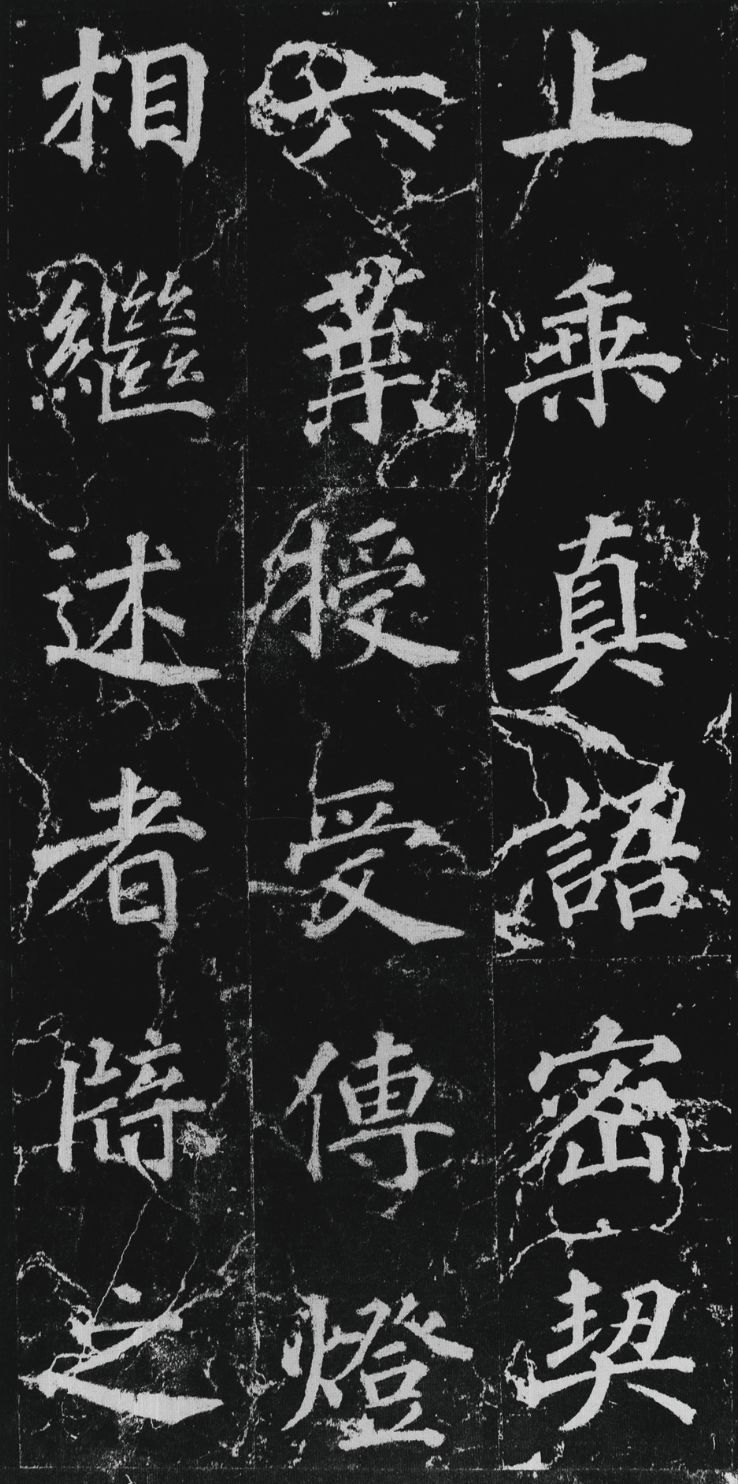 上乘真語密契
六葉授受傳燈
相繼述者之